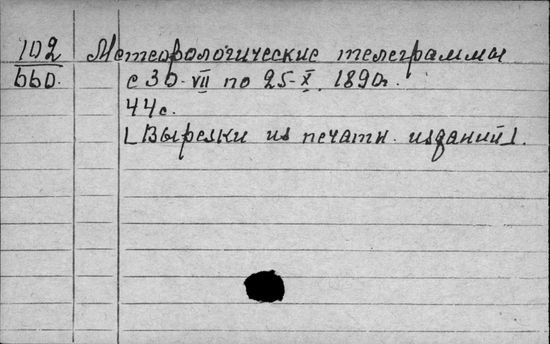 102 Метеорологические телеграммы
660. с 30. VII по 25. X. 1890г.
44с.
[Вырезки из печатн. изданий].